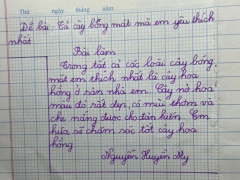 Thứ ngày tháng năm
Đề bài: Tả cây bóng mát mà em yêu thích
nhất
Bài làm
Trong tất cả các loài cây bóng
mát em thích nhất là cây hoa
hồng ở sân nhà em. Cây nở hoa
màu đỏ rất đẹp, có mùi thơm và
che nắng được cho đàn kiến. Em
hứa sẽ chăm sóc tốt cây hoa
hồng
Nguyễn Huyền My